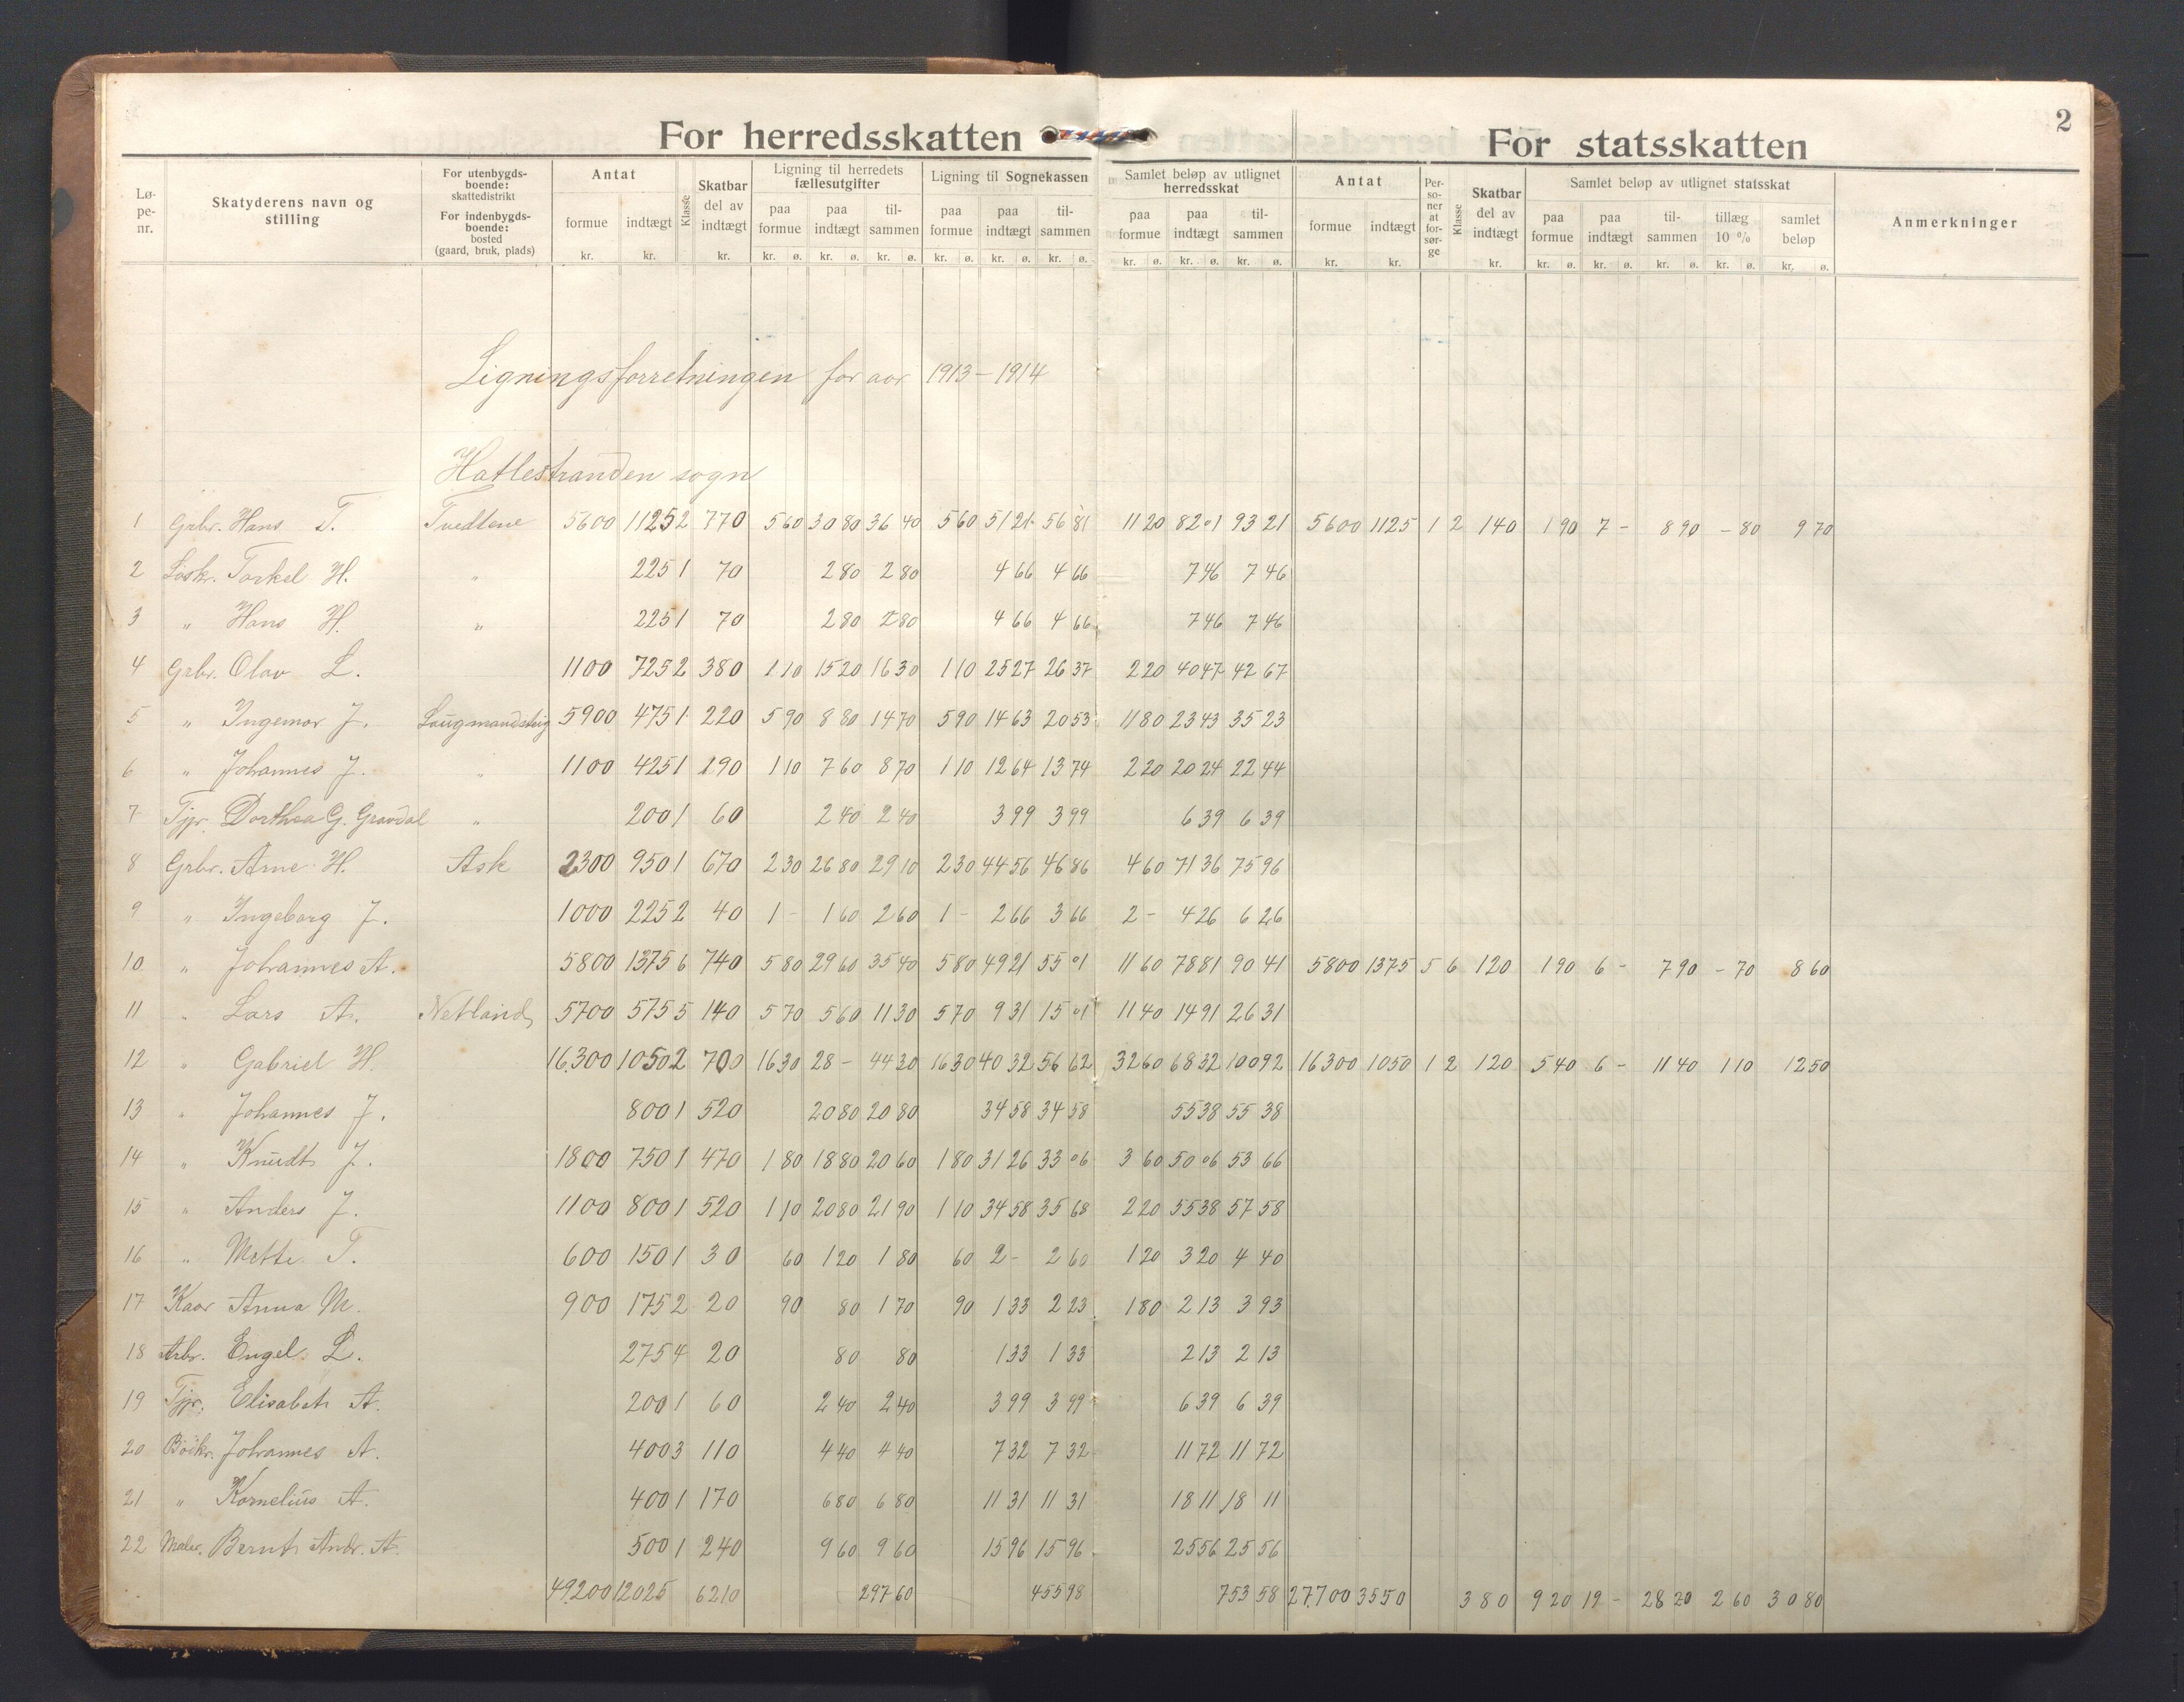 2
For herredsskatten For statsskatten
Lø-pe-nr. Skatyderens navn og stilling For utenbygds-boende: skattedistrikt For indenbygds-boende: bosted (gaard, bruk, plads) Antat formue kr. indtægt kr. Klasse Skatbar del av indtægt kr. Ligning til herredets fællesutgifter paa formue kr. ø. paa indtægt kr. ø. til-sammen kr. ø. Ligning til Sognekassen paa formue kr. ø. paa indtægt kr. ø. til-sammen kr. ø. Samlet beløp av utlignet herredsskat paa formue kr. ø. paa indtægt kr. ø. til-sammen kr. ø. Antat formue kr. indtægt kr. Per-so-ner at for-sør-ge Klasse Skatbar del av indtægt kr. Samlet beløp av utlignet statsskat paa formue kr. ø. paa indtægt kr. ø. til-sammen kr. ø. tillæg 10 % kr. ø. samlet beløp kr. ø. Anmerkninger
Ligningsforretningen for aar 1913 – 1914
Hatlestranden sogn
1 Grbr. Hans T. Tvedtene 5600 1125 2 770 5 60 30 80 36 40 5 60 51 21 56 81 11 20 82 01 93 21 5600 1125 1 2 140 1 90 7 – 8 90 – 80 9 70
2 Løsk. Torkel H. " 225 1 70 2 80 2 80 4 66 4 66 7 46 7 46
3 " Hans H. " 225 1 70 2 80 2 80 4 66 4 66 7 46 7 46
4 Grbr. Olav L. 1100 725 2 380 1 10 15 20 16 30 1 10 25 27 26 37 2 20 40 47 42 67
5 " Ingemor J. Laugmandsteig 5900 475 1 220 5 90 8 80 14 70 5 90 14 63 20 53 11 80 23 43 35 23
6 " Johannes J. " 1100 425 1 190 1 10 7 60 8 70 1 10 12 64 13 74 2 20 20 24 22 44
7 Tjr. Dorthea G. Gravdal " 200 1 60 2 40 2 40 3 99 3 99 6 39 6 39
8 Grbr. Arne H. Ask 2300 950 1 670 2 30 26 80 29 10 2 30 44 56 46 86 4 60 71 36 75 96
9 " Ingeborg J. 1000 225 2 40 1 – 1 60 2 60 1 – 2 66 3 66 2 – 4 26 6 26
10 " Johannes A. 5800 1375 6 740 5 80 29 60 35 40 5 80 49 21 55 01 11 60 78 81 90 41 5800 1375 5 6 120 1 90 6 – 7 90 – 70 8 60
11 " Lars A. Netland 5700 575 5 140 5 70 5 60 11 30 5 70 9 31 15 01 11 40 14 91 26 31
12 " Gabriel H. 16.300 1050 2 700 16 30 28 – 44 30 16 30 40 32 56 62 32 60 68 32 100 92 16300 1050 1 2 120 5 40 6 – 11 40 1 10 12 50
13 " Johannes J. 800 1 520 20 80 20 80 34 58 34 58 55 38 55 38
14 " Knudt J. 1800 750 1 470 1 80 18 80 20 60 1 80 31 26 33 06 3 60 50 06 53 66
15 " Anders J. 1100 800 1 520 1 10 20 80 21 90 1 10 34 58 35 68 2 20 55 38 57 58
16 " Mette T. 600 150 1 30 60 1 20 1 80 60 2 – 2 60 1 20 3 20 4 40
17 Kaar Anna M. 900 175 2 20 90 80 1 70 90 1 33 2 23 1 80 2 13 3 93
18 Arbr. Engel L. 275 4 20 80 80 1 33 1 33 2 13 2 13
19 Tjr. Elisabet A. 200 1 60 2 40 2 40 3 99 3 99 6 39 6 39
20 Bøikr. Johannes A. 400 3 110 4 40 4 40 7 32 7 32 11 72 11 72
21 " Kornelius A. 400 1 170 6 80 6 80 11 31 11 31 18 11 18 11
22 Maler. Bernt Andr. A. 500 1 240 9 60 9 60 15 96 15 96 25 56 25 56
49.200 12025 6210 297 60 455 98 753 58 27.700 3550 380 9 20 19 – 28 20 2 60 30 80